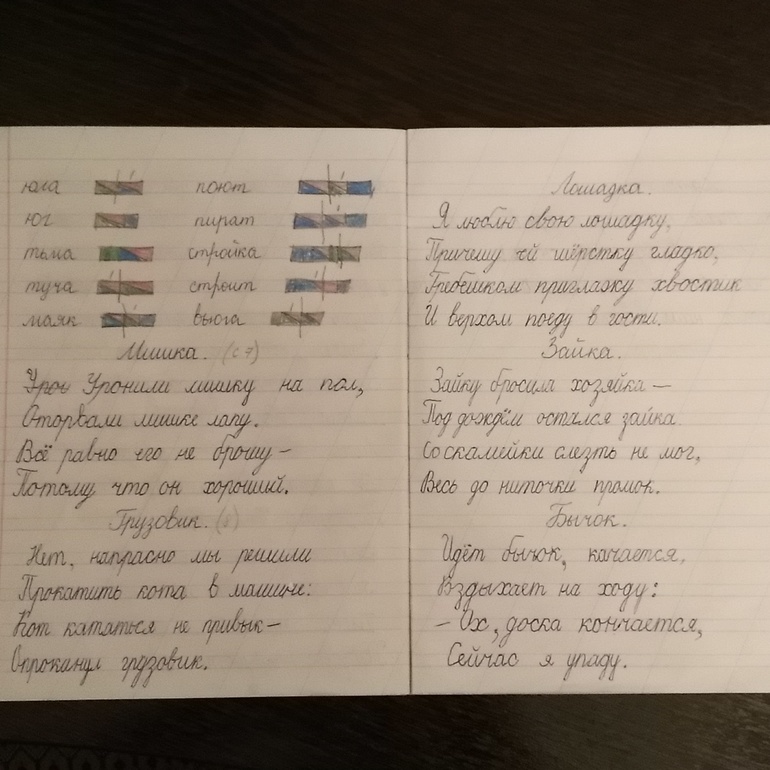 юла поют
юг пират
тьма стройка
туча строит
маяк вьюга
Мишка. (с 7)
Уро Уронили мишку на пол,
Оторвали мишке лапу.
Всё равно его не брошу –
Потому что он хороший.
Грузовик.
Нет, напрасно мы решили
Прокатить кота в машине:
Кот кататься не привык –
Опрокинул грузовик.
Лошадка.
Я люблю свою лошадку,
Причешу ей шёрстку гладко,
Гребешком приглажу хвостик
И верхом поеду в гости.
Зайка.
Зайку бросила хозяйка –
Под дождём остался зайка
Со скамейки слезть не мог,
Весь до ниточки промок.
Бычок.
Идёт бычок, качается,
Вздыхает на ходу:
– Ох, доска кончается,
Сейчас я упаду.